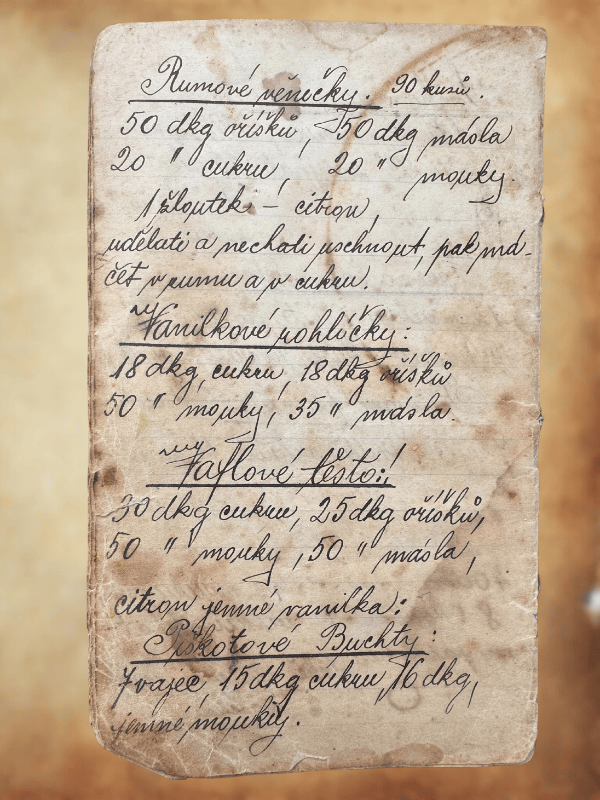 Rumové věnečky. 90 kusů.
50 dkg oříšků, 50 dkg másla
20 " cukru, 20 " mouky.
1 žloutek – citron,
udělati a nechati uschnout, pak má-
čet v rumu a v cukru.
Vanilkové rohlíčky:
18 dkg cukru, 18 dkg oříšků
50 " mouky, 35 " másla.
Vaflové těsto:!
30 dkg cukru, 25 dkg oříšků,
50 " mouky, 50 " másla,
citron jemné vanilka:
Piškotové Buchty:
7 vajec, 15 dkg cukru, 16 dkg,
jemné mouky.